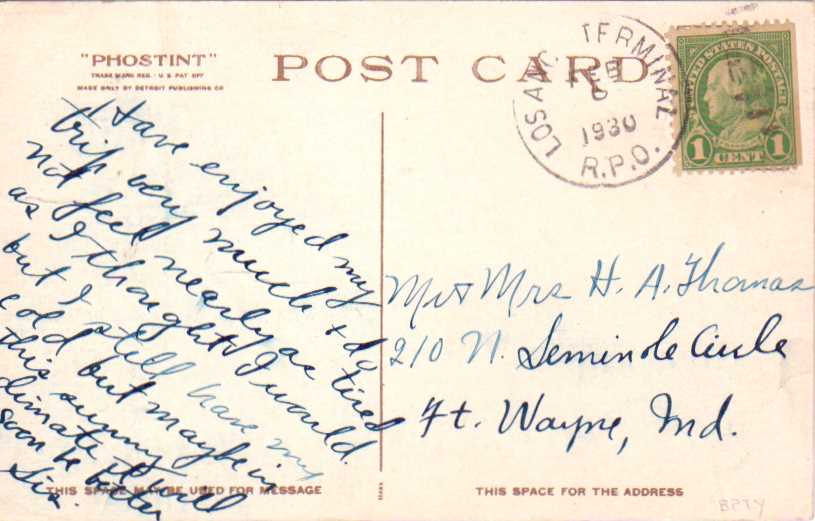 "PHOSTINT"
TRADE MARK REG. U S PAT OFF
MADE ONLY BY DETROIT PUBLISHING CO
POST CARD
LOS ANG. TERMINAL
FEB
1930
R.P.O.
UNITED STATES POSTAGE
1 CENT 1
I Have enjoyed my
trip very much & do
not feel nearly as tired
as I thought I would.
but I still have my
cold but maybe in
this sunny
climate it will
soon be better
Sis.
Mr & Mrs H. A. Thomas
210 N. Seminole Circle
Ft. Wayne, Ind.
THIS SPACE MAY BE USED FOR MESSAGE
THIS SPACE FOR THE ADDRESS